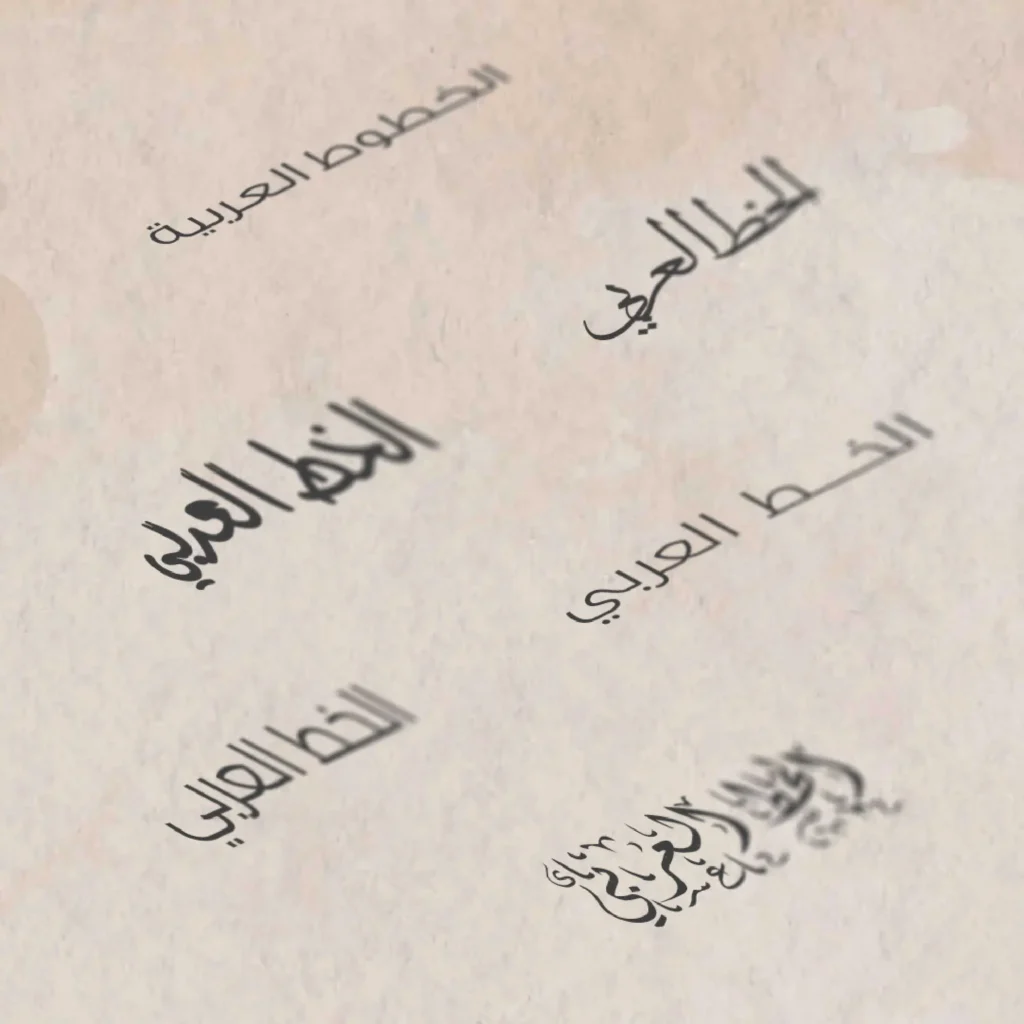 الخطوط العربية
الخط العربي
الخط العربي
الخــط العربي
الخط العربي
الخط العربي